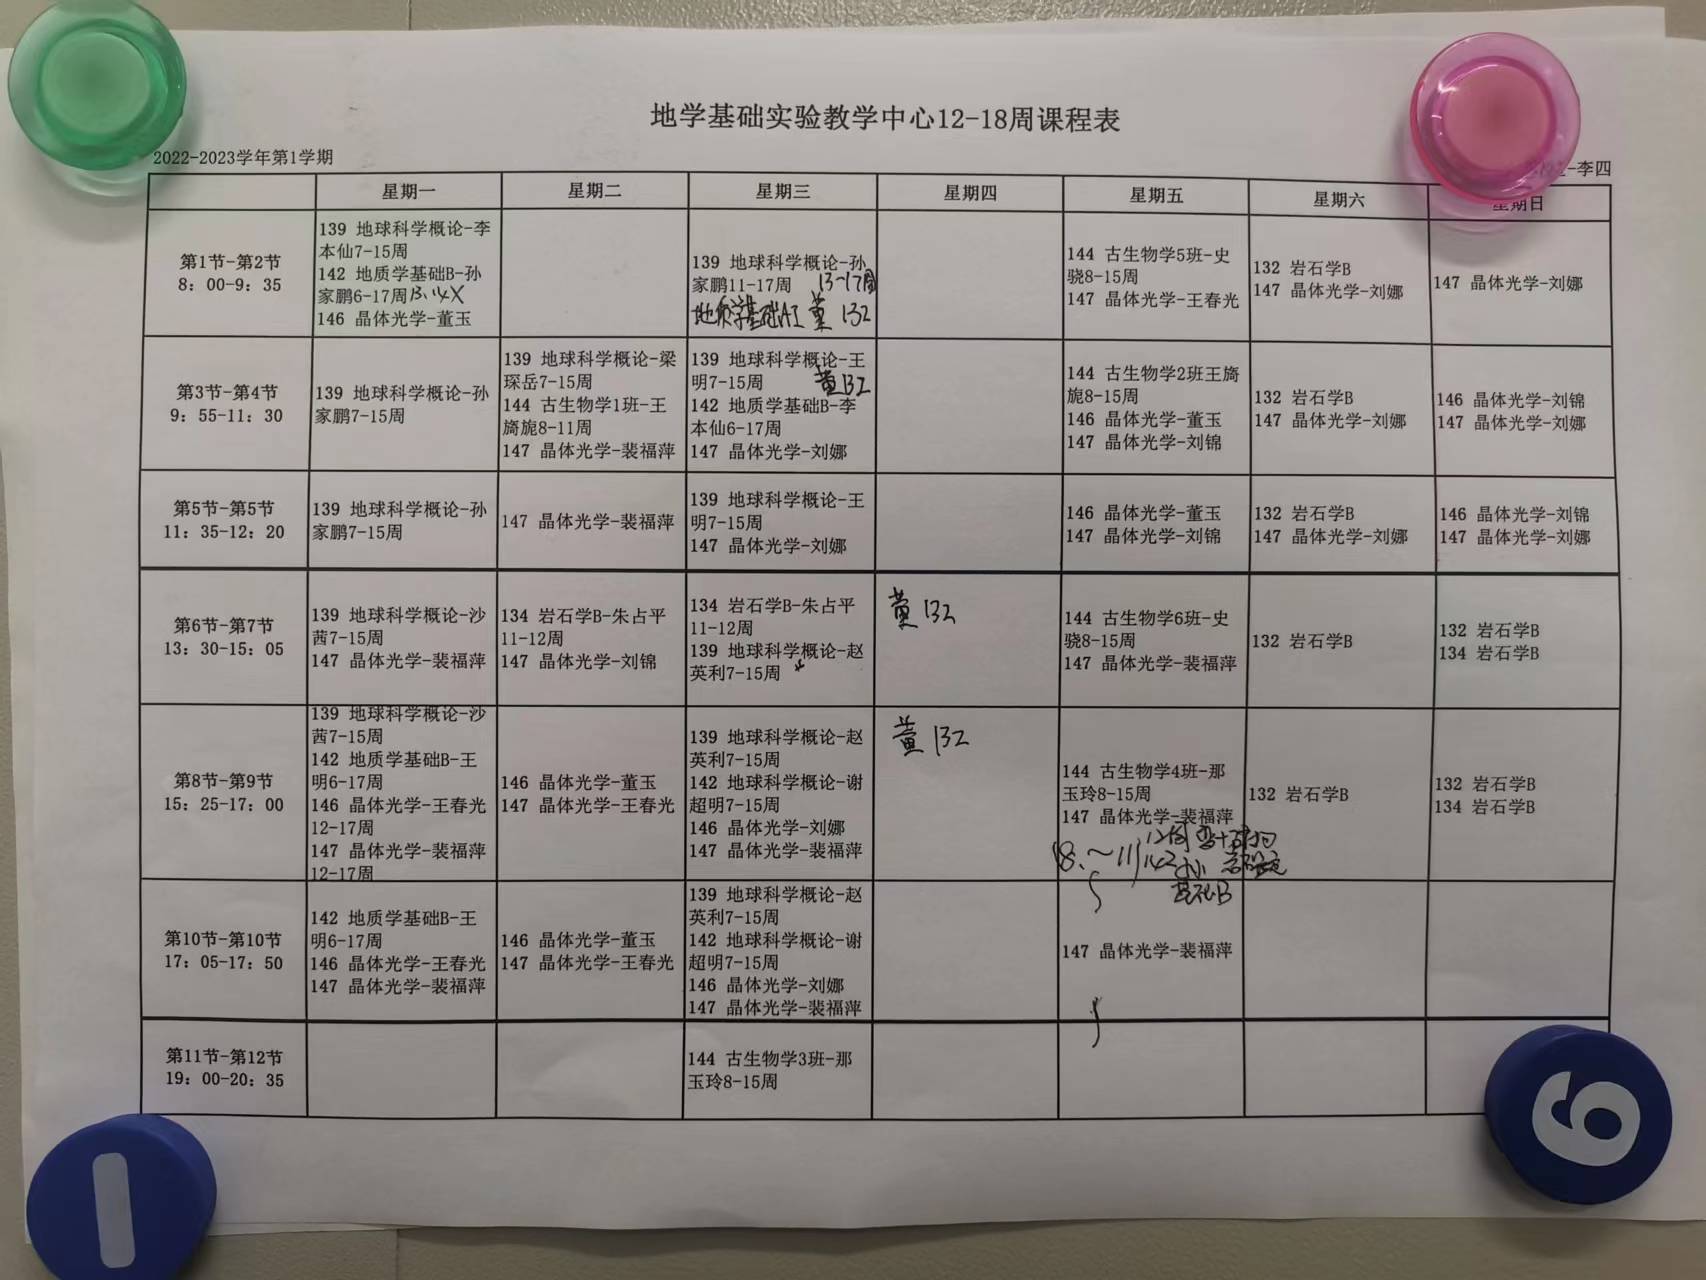 地学基础实验教学中心12-18周课程表
2022-2023学年第1学期
-李四
星期一
星期二
星期三
星期四
星期五
星期六
星期日
第1节-第2节
8：00-9：35
139 地球科学概论-李
本仙7-15周
142 地质学基础B-孙
家鹏6-17周13.14X
146 晶体光学-董玉
139 地球科学概论-孙
家鹏11-17周 13~17周
地质学基础AI 董 132
144 古生物学5班-史
骁8-15周
147 晶体光学-王春光
132 岩石学B
147 晶体光学-刘娜
147 晶体光学-刘娜
第3节-第4节
9：55-11：30
139 地球科学概论-孙
家鹏7-15周
139 地球科学概论-梁
琛岳7-15周
144 古生物学1班-王
旖旎8-11周
147 晶体光学-裴福萍
139 地球科学概论-王
明7-15周 董132
142 地质学基础B-李
本仙6-17周
147 晶体光学-刘娜
144 古生物学2班王旖
旎8-15周
146 晶体光学-董玉
147 晶体光学-刘锦
132 岩石学B
147 晶体光学-刘娜
146 晶体光学-刘锦
147 晶体光学-刘娜
第5节-第5节
11：35-12：20
139 地球科学概论-孙
家鹏7-15周
147 晶体光学-裴福萍
139 地球科学概论-王
明7-15周
147 晶体光学-刘娜
146 晶体光学-董玉
147 晶体光学-刘锦
132 岩石学B
147 晶体光学-刘娜
146 晶体光学-刘锦
147 晶体光学-刘娜
第6节-第7节
13：30-15：05
139 地球科学概论-沙
茜7-15周
147 晶体光学-裴福萍
134 岩石学B-朱占平
11-12周
147 晶体光学-刘锦
134 岩石学B-朱占平
11-12周
139 地球科学概论-赵
英利7-15周
董 132
144 古生物学6班-史
骁8-15周
147 晶体光学-裴福萍
132 岩石学B
132 岩石学B
134 岩石学B
第8节-第9节
15：25-17：00
139 地球科学概论-沙
茜7-15周
142 地质学基础B-王
明6-17周
146 晶体光学-王春光
12-17周
147 晶体光学-裴福萍
12-17周
146 晶体光学-董玉
147 晶体光学-王春光
139 地球科学概论-赵
英利7-15周
142 地球科学概论-谢
超明7-15周
146 晶体光学-刘娜
147 晶体光学-裴福萍
董 132
144 古生物学4班-那
玉玲8-15周
147 晶体光学-裴福萍
12周
(8、~11) 142
基础B
132 岩石学B
132 岩石学B
134 岩石学B
第10节-第10节
17：05-17：50
142 地质学基础B-王
明6-17周
146 晶体光学-王春光
147 晶体光学-裴福萍
146 晶体光学-董玉
147 晶体光学-王春光
139 地球科学概论-赵
英利7-15周
142 地球科学概论-谢
超明7-15周
146 晶体光学-刘娜
147 晶体光学-裴福萍
147 晶体光学-裴福萍
第11节-第12节
19：00-20：35
144 古生物学3班-那
玉玲8-15周
1
6